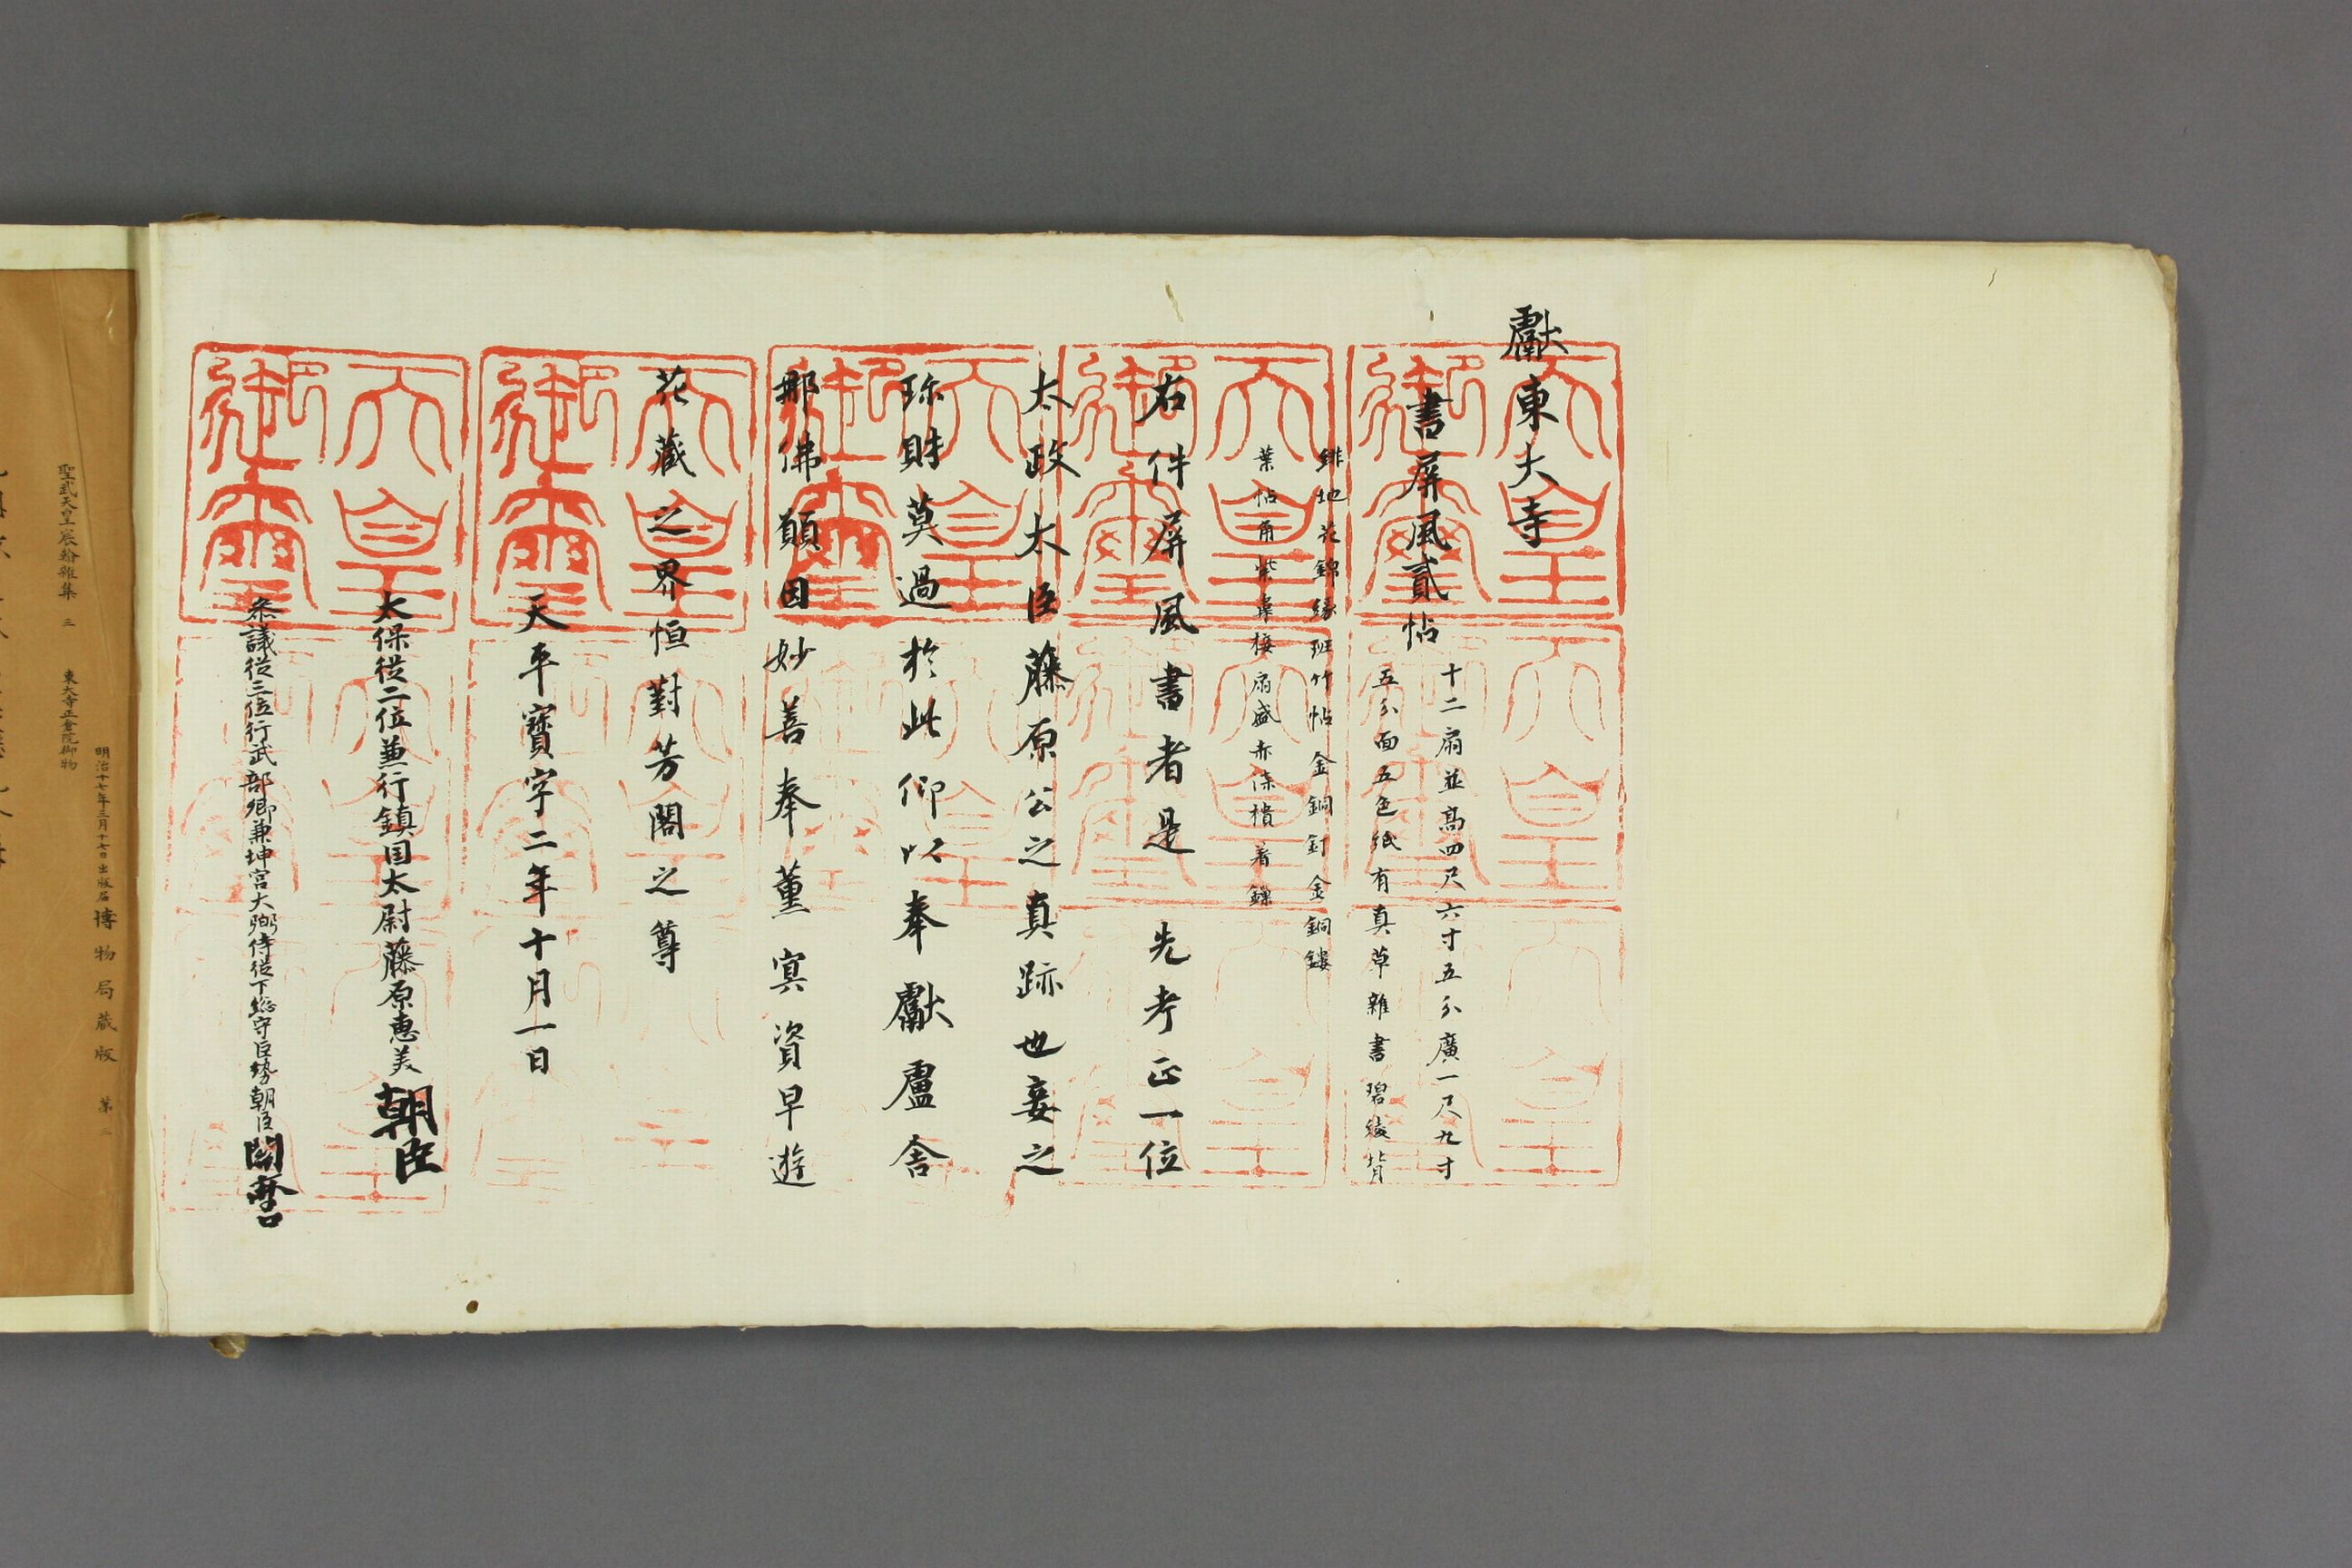 獻東大寺
書屏風貳帖
十二扇並髙四尺六寸五分廣一尺九寸
五分面五色紙有真草雜書碧綾背
緋地花錦緣斑竹帖金銅釘金銅鏤
葉帖角紫皁接扇盛赤漆樻着鏁
右件屏風書者是先考正一位
太政太臣藤原公之真跡也妾之
珎財莫過於此仰以奉獻盧舍
那佛願因妙善奉薫冥資早遊
花藏之界恒對芳閣之尊
天平寶字二年十月一日
太保從二位兼行鎮国太尉藤原惠美朝臣
叅議從三位行武部卿兼坤宮大弼侍從下総守巨勢朝臣關麿
天皇御璽
天皇御璽
天皇御璽
天皇御璽
天皇御璽
明治十七年三月十七日出版届博物局藏版
聖武天皇宸翰雜集 三 東大寺正倉院御物